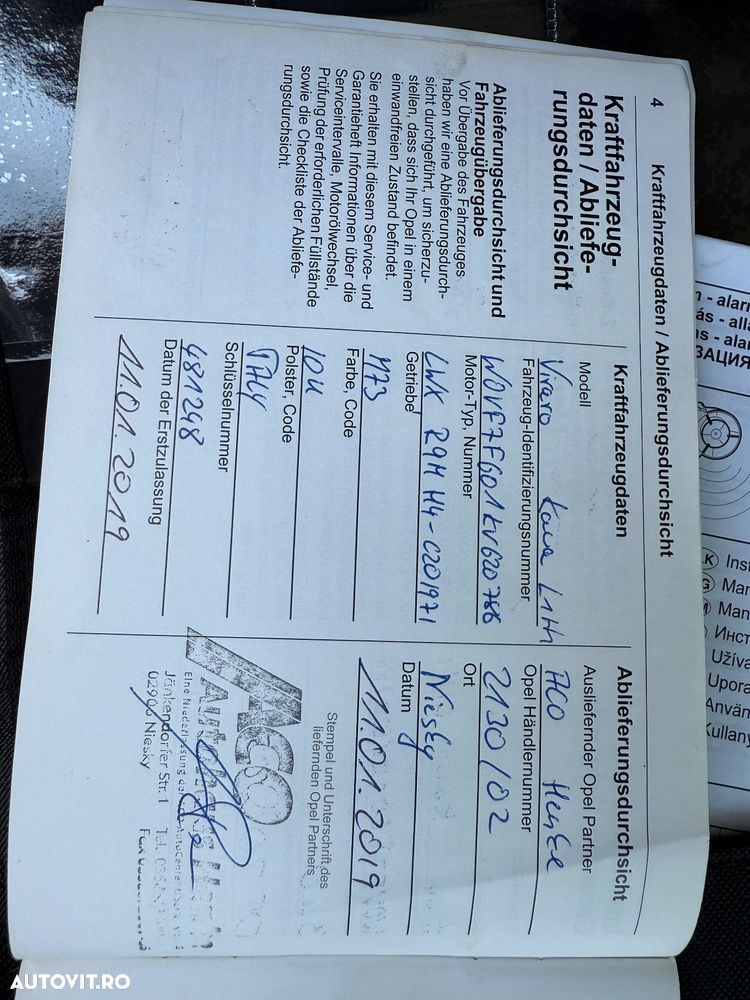 4
Kraftfahrzeugdaten / Ablieferungsdurchsicht
Kraftfahrzeug-
daten / Abliefe-
rungsdurchsicht
Ablieferungsdurchsicht und
Fahrzeugübergabe
Vor Übergabe des Fahrzeuges
haben wir eine Ablieferungsdurch-
sicht durchgeführt, um sicherzu-
stellen, dass sich Ihr Opel in einem
einwandfreien Zustand befindet.
Sie erhalten mit diesem Service- und
Garantieheft Informationen über die
Serviceintervalle, Motorölwechsel,
Prüfung der erforderlichen Füllstände
sowie die Checkliste der Abliefe-
rungsdurchsicht.
Kraftfahrzeugdaten
Modell
Vivaro
Fahrzeug-Identifizierungsnummer
W0VF7F601KV620786
Motor-Typ, Nummer
R9M
Getriebe
M73
Farbe, Code
10U
Polster, Code
Schlüsselnummer
481248
Datum der Erstzulassung
11.01.2019
Ablieferungsdurchsicht
Ausliefernder Opel Partner
ACO
Opel Händlernummer
2130/02
Ort
Niesky
Datum
11.01.2019
Stempel und Unterschrift des
liefernden Opel Partners
ACO
Eine Niederlassung der
Jänkendorfer Str. 1 Tel.
02906 Niesky Fax
- alarm
ЗАЦИЯ
K Inst
G Man
Man
Инст
Užíva
Upora
Använ
Kullany
AUTOVIT.RO